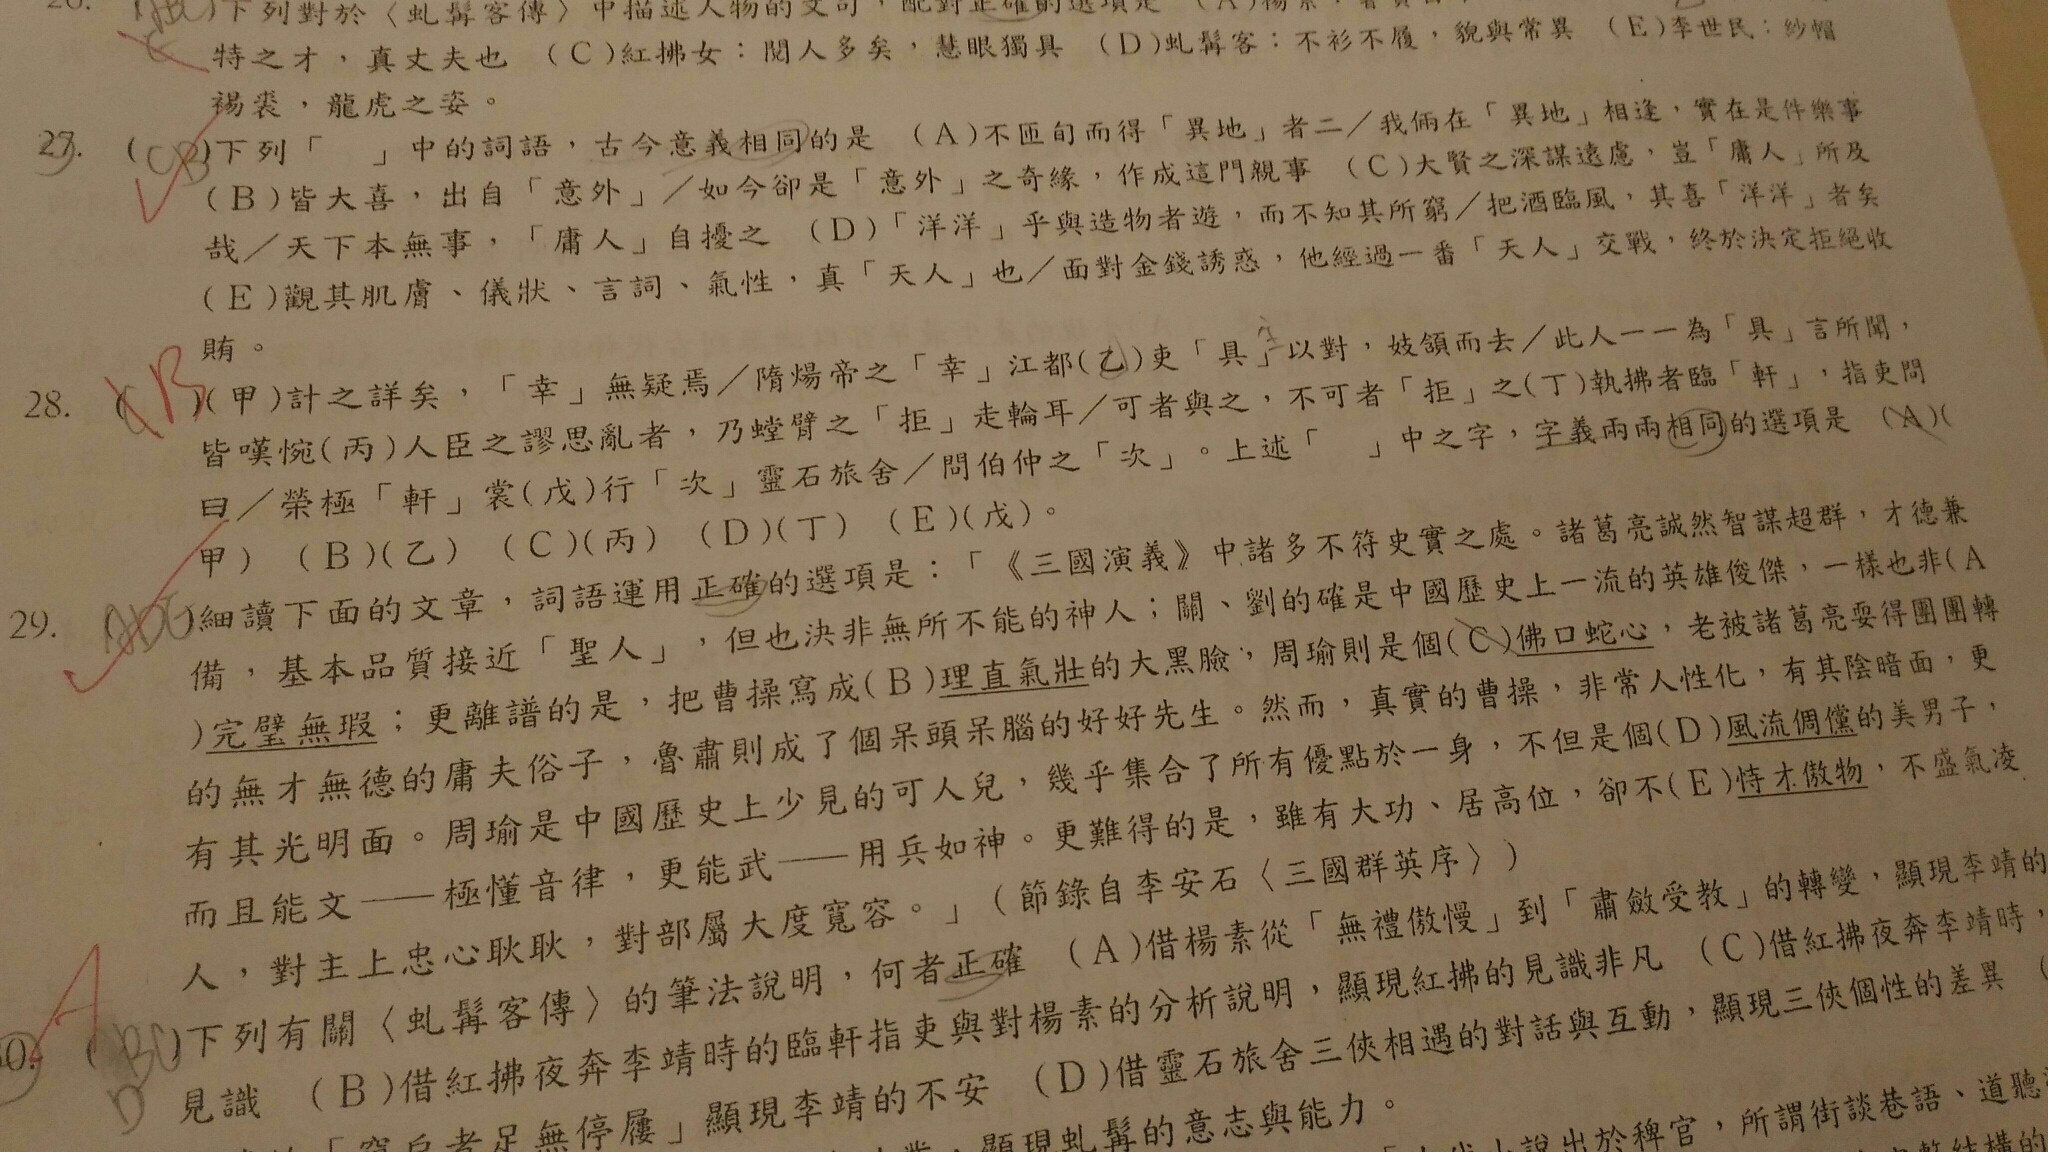 下列對於〈虬髯客傳〉中描述人物的文句，配對正確的選項是 (A)楊素
特之才，真丈夫也 (C)紅拂女：閱人多矣，慧眼獨具 (D)虬髯客：不衫不履，貌與常異 (E)李世民：紗帽
裼裘，龍虎之姿。
27. ( CB )下列「 」中的詞語，古今意義相同的是 (A)不匝旬而得「異地」者二／我倆在「異地」相逢，實在是件樂事
(B)皆大喜，出自「意外」／如今卻是「意外」之奇緣，作成這門親事 (C)大賢之深謀遠慮，豈「庸人」所及
哉／天下本無事，「庸人」自擾之 (D)「洋洋」乎與造物者遊，而不知其所窮／把酒臨風，其喜「洋洋」者矣
(E)觀其肌膚、儀狀、言詞、氣性，真「天人」也／面對金錢誘惑，他經過一番「天人」交戰，終於決定拒絕收
賄。
28. ( B )(甲)計之詳矣，「幸」無疑焉／隋煬帝之「幸」江都(乙)吏「具」以對，妓頷而去／此人一一為「具」言所聞，
皆嘆惋(丙)人臣之謬思亂者，乃螳臂之「拒」走輪耳／可者與之，不可者「拒」之(丁)執拂者臨「軒」，指吏問
曰／榮極「軒」裳(戊)行「次」靈石旅舍／問伯仲之「次」。上述「 」中之字，字義兩兩相同的選項是 (A)(
甲) (B)(乙) (C)(丙) (D)(丁) (E)(戊)。
29. ( ADE )細讀下面的文章，詞語運用正確的選項是：「《三國演義》中諸多不符史實之處。諸葛亮誠然智謀超群，才德兼
備，基本品質接近「聖人」，但也決非無所不能的神人；關、劉的確是中國歷史上一流的英雄俊傑，一樣也非(A
)完璧無瑕；更離譜的是，把曹操寫成(B)理直氣壯的大黑臉，周瑜則是個(C)佛口蛇心，老被諸葛亮耍得團團轉
的無才無德的庸夫俗子，魯肅則成了個呆頭呆腦的好好先生。然而，真實的曹操，非常人性化，有其陰暗面，更
有其光明面。周瑜是中國歷史上少見的可人兒，幾乎集合了所有優點於一身，不但是個(D)風流倜儻的美男子，
而且能文——極懂音律，更能武——用兵如神。更難得的是，雖有大功、居高位，卻不(E)恃才傲物，不盛氣凌
人，對主上忠心耿耿，對部屬大度寬容。」（節錄自李安石〈三國群英序〉）
A )下列有關〈虬髯客傳〉的筆法說明，何者正確 (A)借楊素從「無禮傲慢」到「肅斂受教」的轉變，顯現李靖的
見識 (B)借紅拂夜奔李靖時的臨軒指吏與對楊素的分析說明，顯現紅拂的見識非凡 (C)借紅拂夜奔李靖時，
「窺戶者足無停屨」顯現李靖的不安 (D)借靈石旅舍三俠相遇的對話與互動，顯現三俠個性的差異
顯現虬髯的意志與能力。
小說出於稗官，所謂街談巷語、道聽